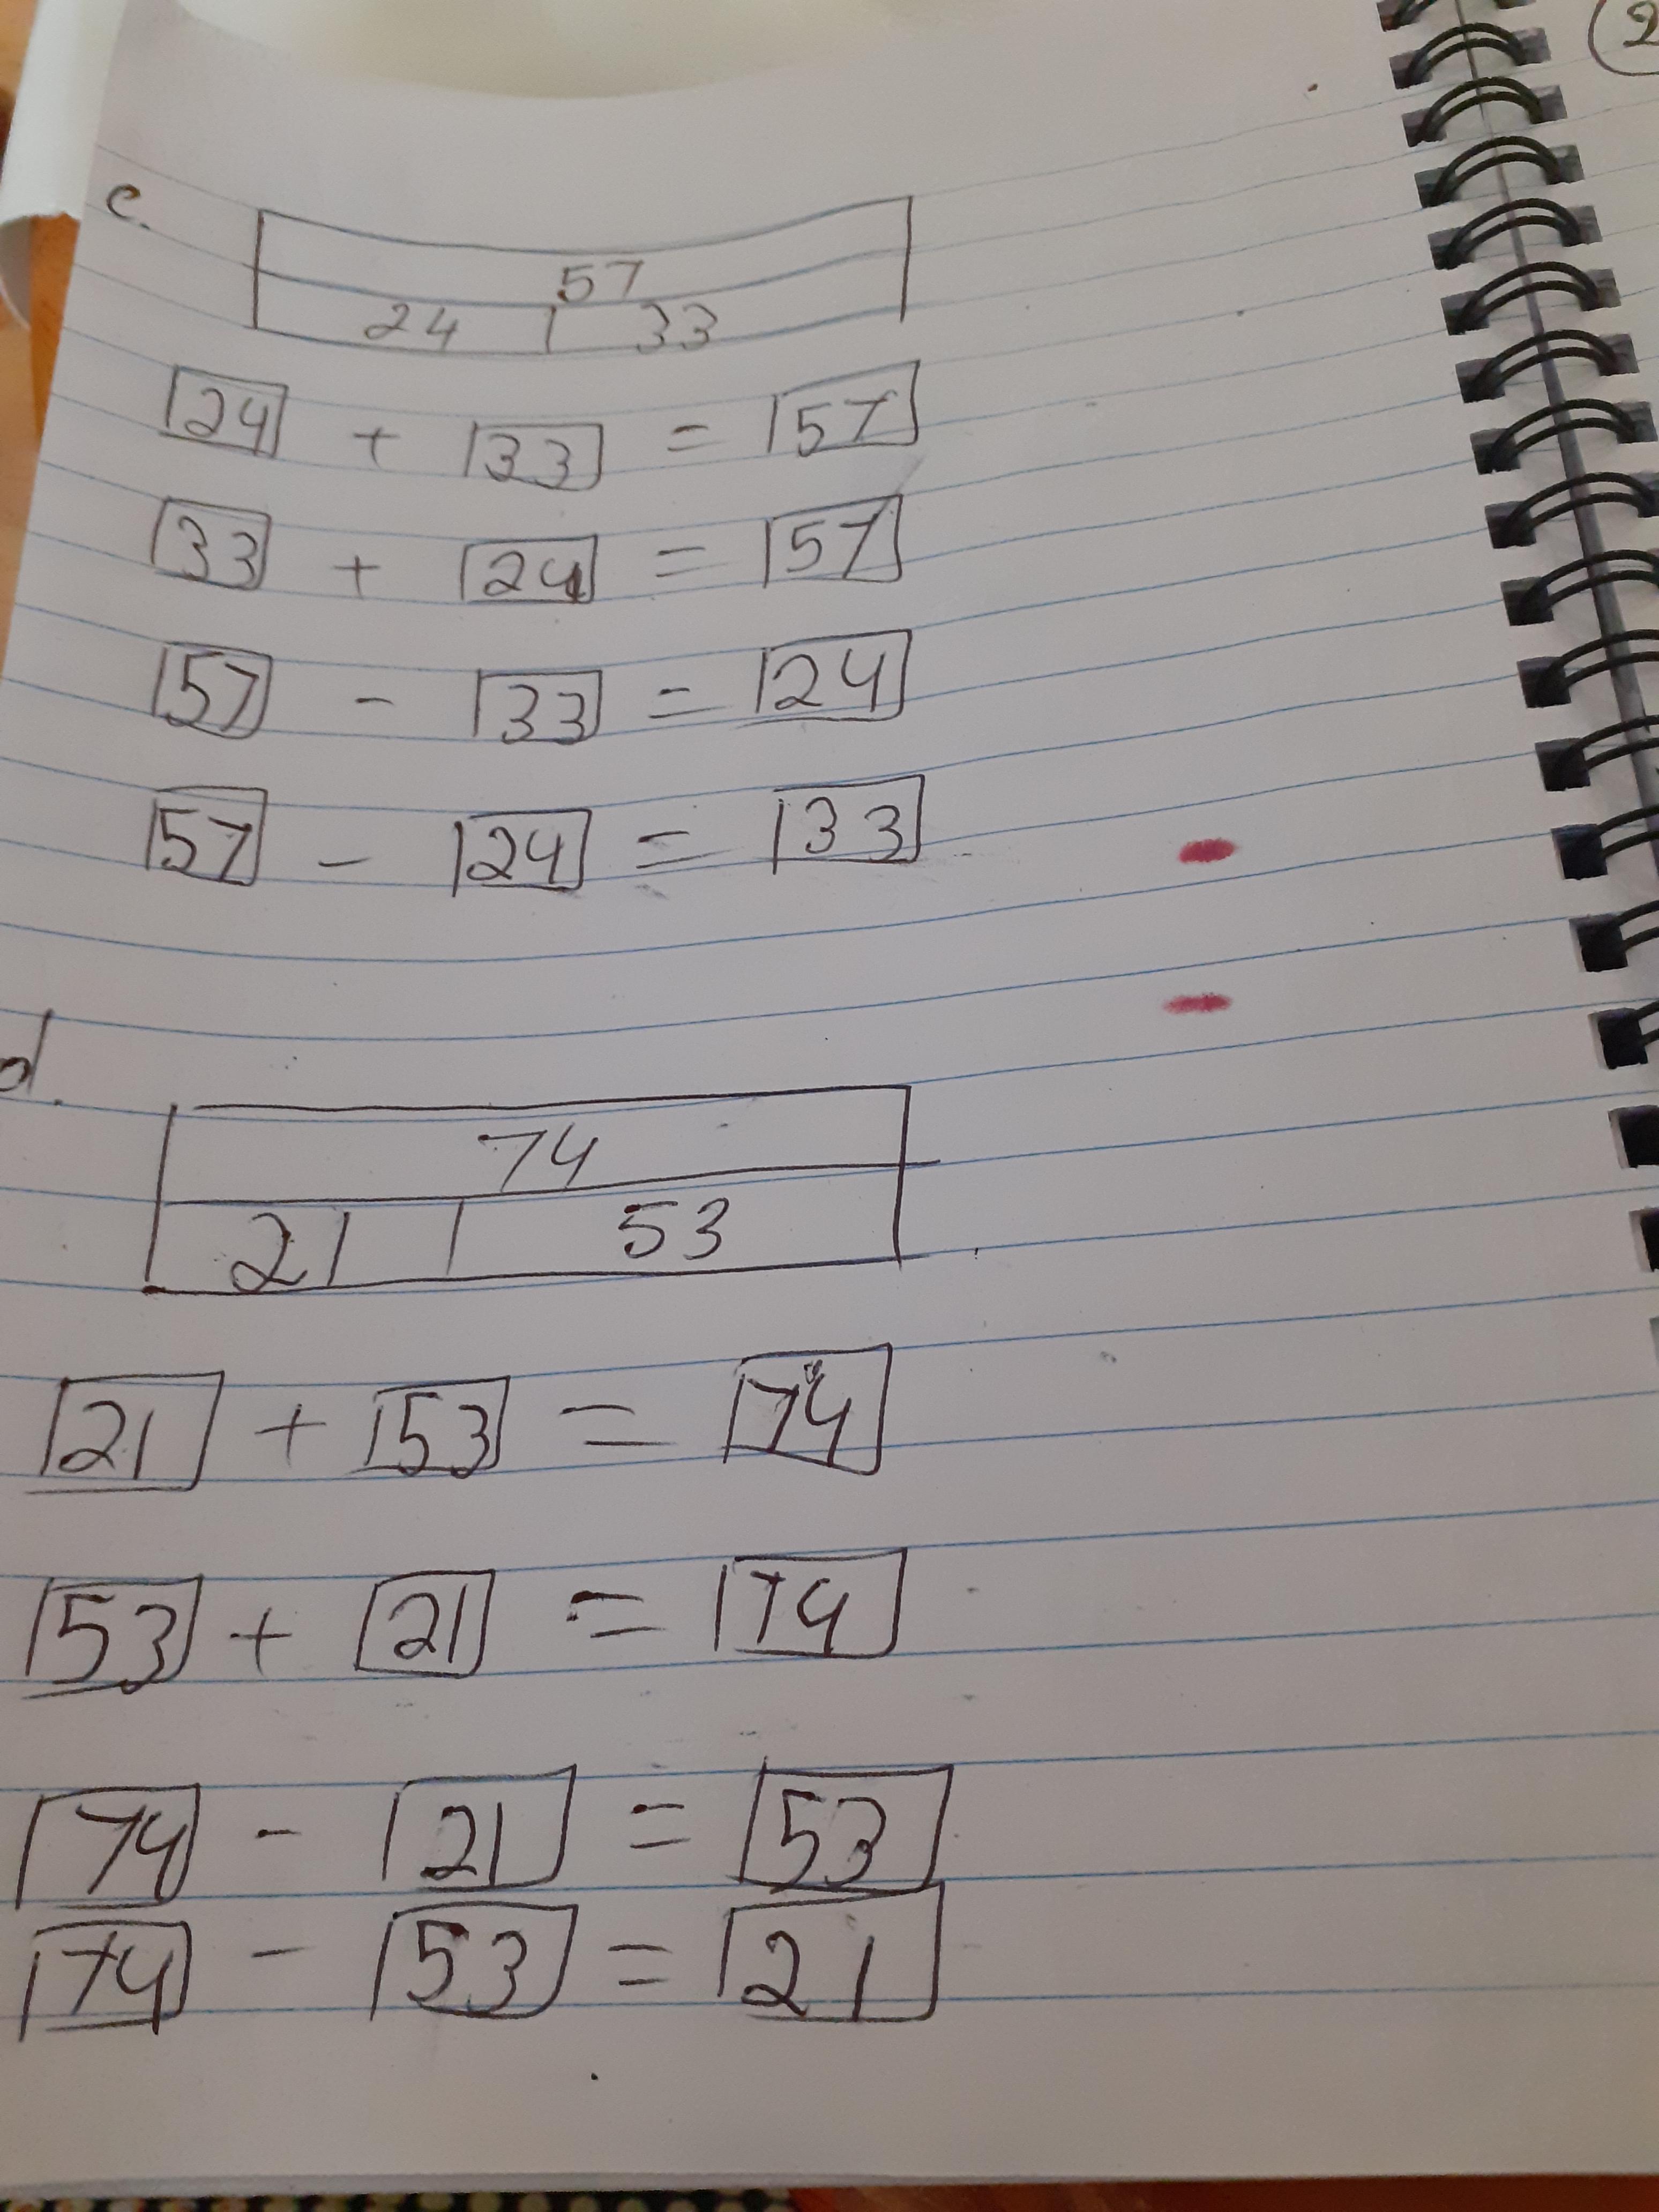 2
c.
57
24 33
24 + 33 = 57
33 + 24 = 57
57 - 33 = 24
57 - 24 = 33
d.
74
21 53
21 + 53 = 74
53 + 21 = 74
74 - 21 = 53
74 - 53 = 21